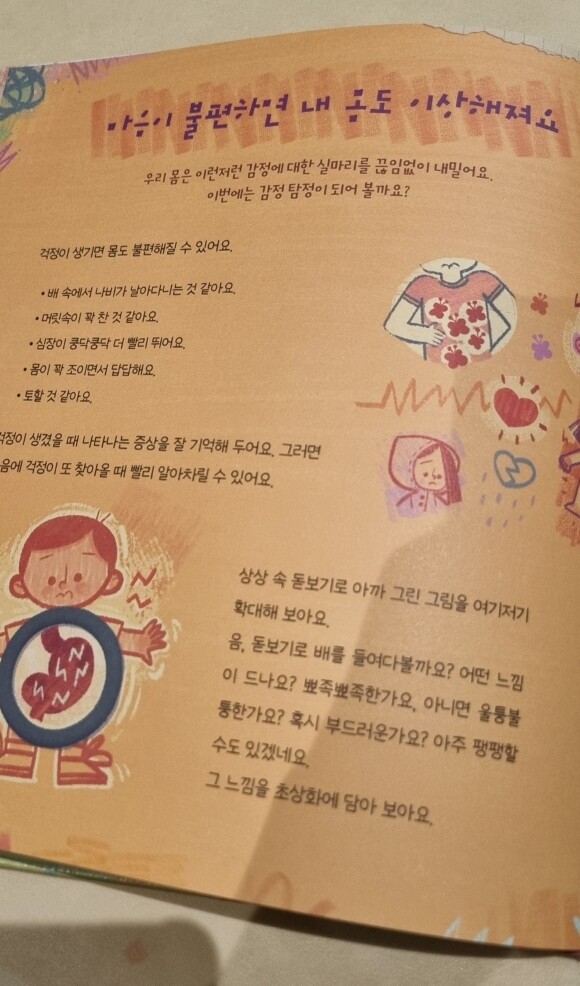 마음이 불편하면 내 몸도 이상해져요
우리 몸은 이런저런 감정에 대한 실마리를 끊임없이 내밀어요.
이번에는 감정 탐정이 되어 볼까요?
걱정이 생기면 몸도 불편해질 수 있어요.
• 배 속에서 나비가 날아다니는 것 같아요.
• 머릿속이 꽉 찬 것 같아요.
• 심장이 쿵닥쿵닥 더 빨리 뛰어요.
• 몸이 꽉 조이면서 답답해요.
• 토할 것 같아요.
걱정이 생겼을 때 나타나는 증상을 잘 기억해 두어요. 그러면
음에 걱정이 또 찾아올 때 빨리 알아차릴 수 있어요.
상상 속 돋보기로 아까 그린 그림을 여기저기
확대해 보아요.
음, 돋보기로 배를 들여다볼까요? 어떤 느낌
이 드나요? 뾰족뾰족한가요, 아니면 울퉁불
퉁한가요? 혹시 부드러운가요? 아주 팽팽할
수도 있겠네요.
그 느낌을 초상화에 담아 보아요.